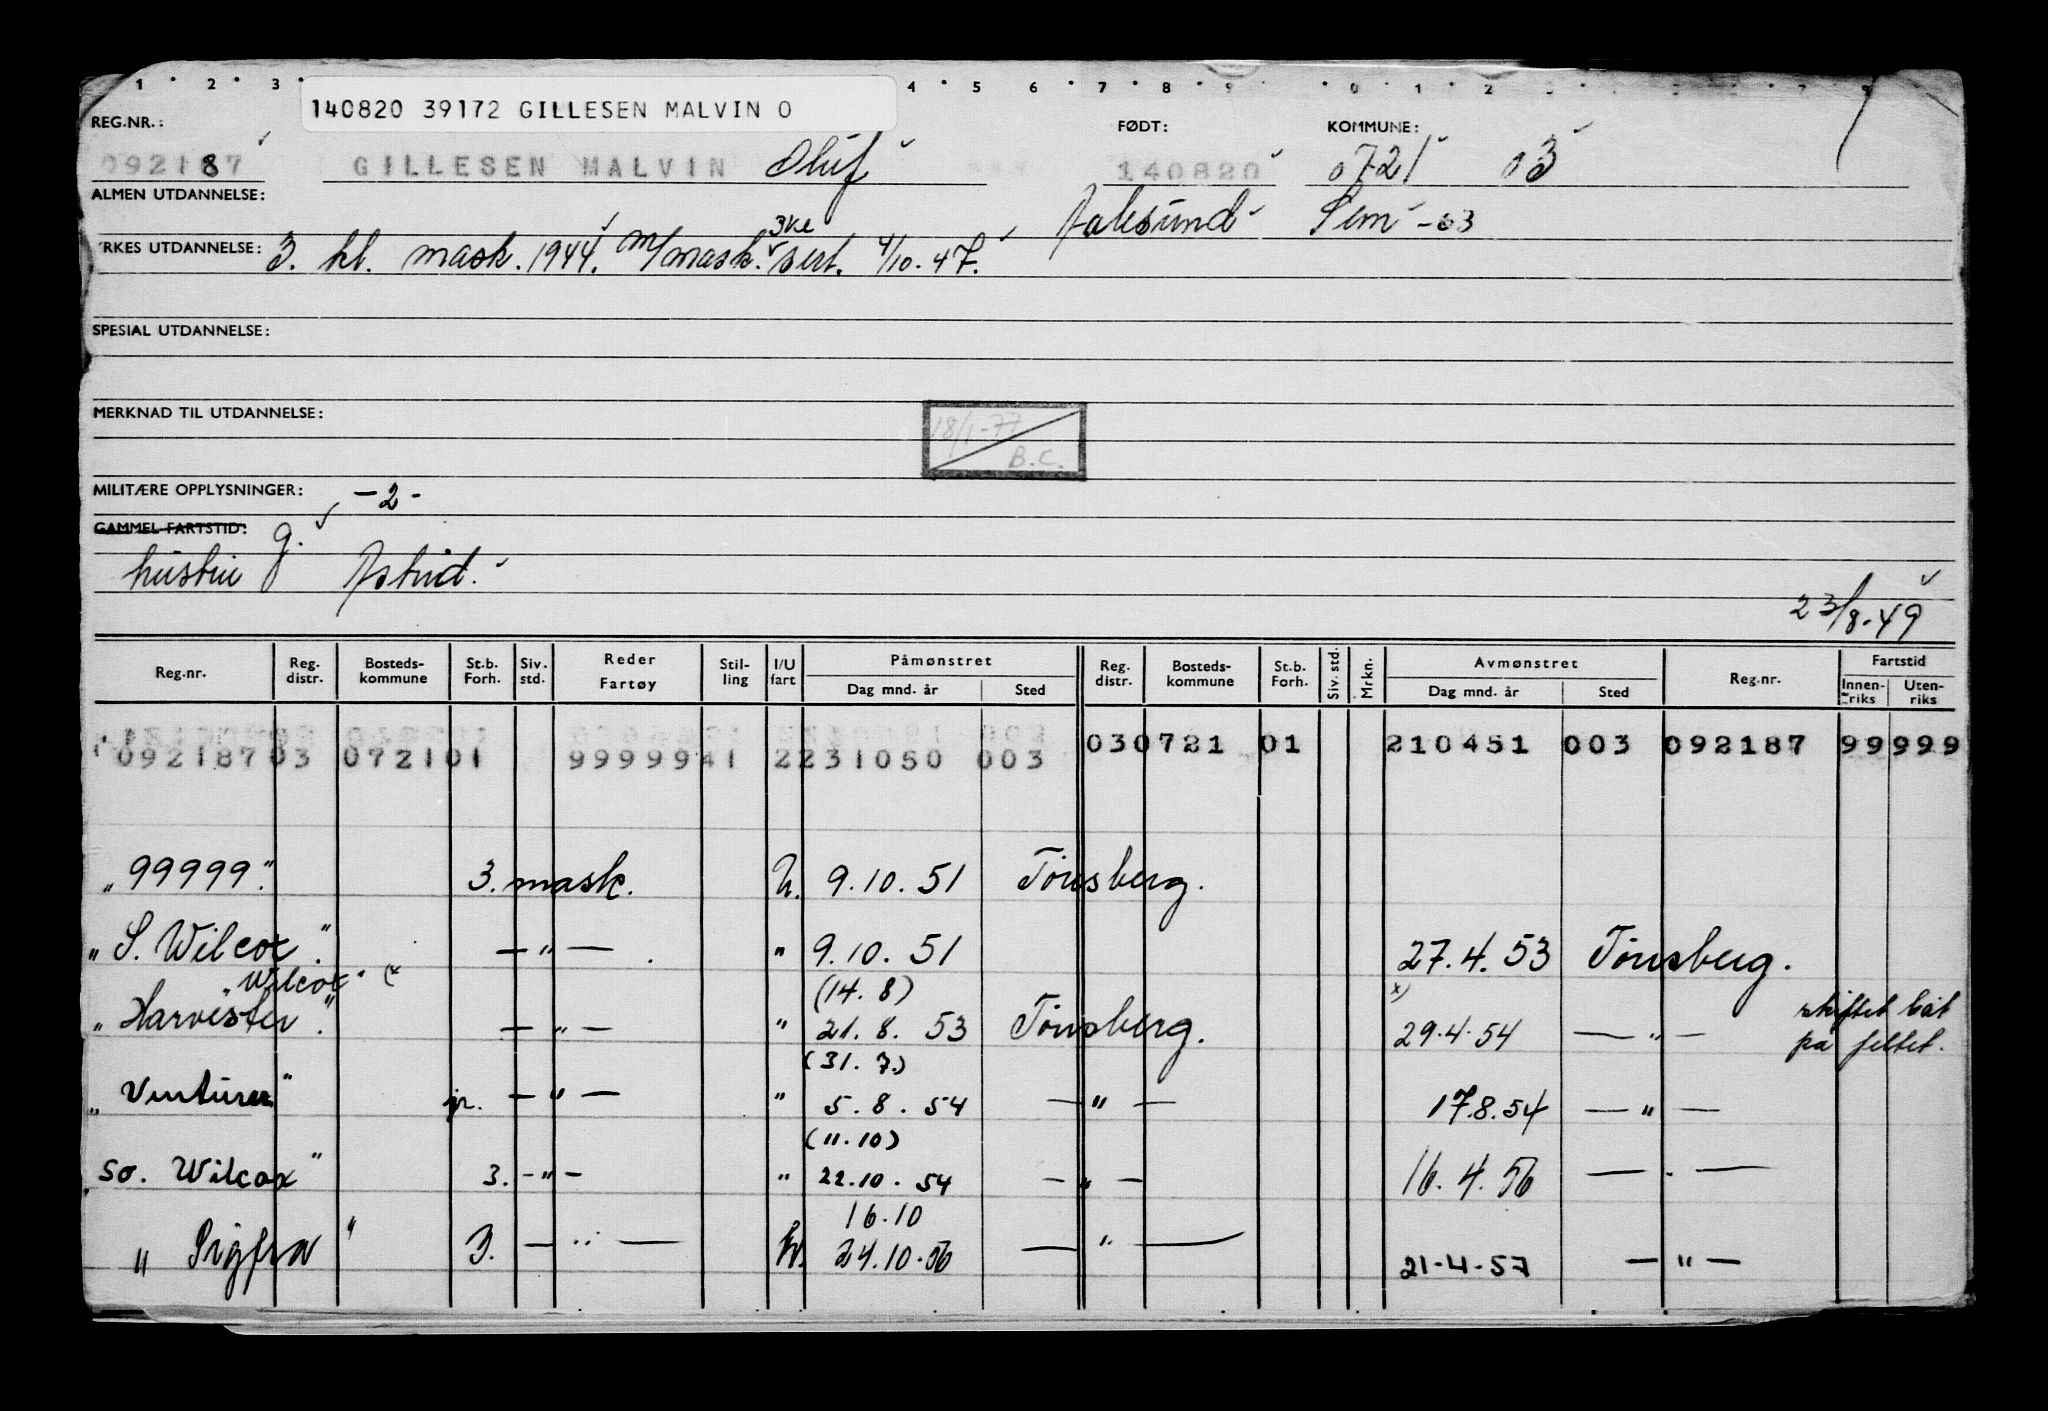 1 · 2 · 3 · 4 · 5 · 6 · 7 · 8 · 9 · 0 · 1 · 2
140820 39172 GILLESEN MALVIN O
REG.NR.: FØDT: KOMMUNE:
092187 GILLESEN MALVIN Oluf 140820 0721 03
ALMEN UTDANNELSE: Aalesund Sem -03
YRKES UTDANNELSE: 3. kl. mask. 1944. m/mask. 3kl sert. 4/10.47.
SPESIAL UTDANNELSE:
MERKNAD TIL UTDANNELSE:
18/1-77
B.C.
MILITÆRE OPPLYSNINGER: -2-
GAMMEL FARTSTID: g.
hustru Astrid.
23/8.49
Reg.nr. Reg. distr. Bosteds-kommune St.b. Forh. Siv. std. Reder Fartøy Stil-ling I/U fart Påmønstret Dag mnd. år Sted Reg. distr. Bosteds-kommune St.b. Forh. Siv. std. Mrkn. Avmønstret Dag mnd. år Sted Reg.nr. Fartstid Innen-riks Uten-riks
092187 03 0721 01 99999 41 2 231050 003 03 0721 01 210451 003 092187 99999
„99999." 3. mask. U. 9.10.51 Tönsberg.
„S. Wilcox." — „ — " 9.10.51 27.4.53 Tönsberg.
„Wilcox" (x (14.8) x)
„Harvester." — „ — " 21.8.53 Tönsberg. 29.4.54 — " — skiftet båt på feltet.
(31.7.)
„Venturer" jr. — " — " 5.8.54 — " — 17.8.54 — " —
(11.10)
„so. Wilcox" 3. - " - " 22.10.54 — „ — 16.4.56 — " —
16.10
„Sigfra" 3. — " — U. 24.10.56 — " — 21.4.57 — " —